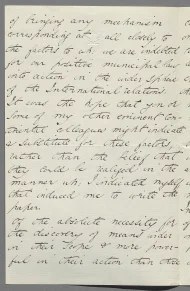 of bringing any mechanism
corresponding at all closely to
the factors to wh: we are indebted
for our positive municipal law
into action in the wider sphere
of the International relations.
It was the hope that you or
some of my other eminent con-
tinental colleagues might indicate
a substitute for these factors
rather than the belief that
they could be realized in the
manner wh. I indicated myself
that induced me to write the
paper.
Of the absolute necessity for
the discovery of means wider
in their scope & more power-
ful in their action than those